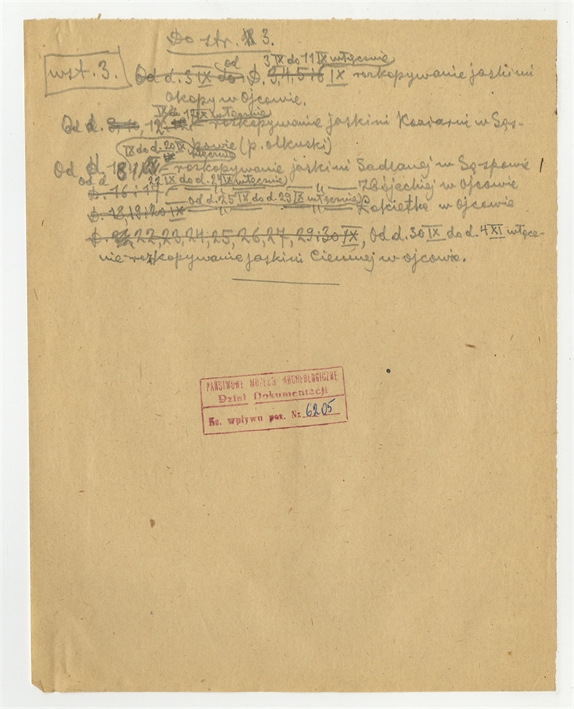 Do str. 3.
od 3 IX do 11 IX włącznie
wst. 3.
Od d. 3 IX do D. 3, 4, 5 i 6 IX rozkopywanie jaskini
Okopy w Ojcowie.
IX do 17 IX włącznie
Od d. 12 rozkopywanie jaskini Koziarni w Sąs-
IX do d. 20 IX włącznie
powie (p. olkuski)
Od d. 18 IX rozkopywanie jaskini Sadlanej w Sąspowie
od d. 22 IX do d. 24 IX włącznie
D. 16 i 17 — „ — „ — Zbójeckiej w Ojcowie
od d. 25 IX do d. 29 IX włącznie
D. 18, 19 i 20 IX — „ — „ — Łokietka w Ojcowie
D. 22, 23, 24, 25, 26, 27, 29 i 30 IX, Od d. 30 IX do d. 4 XI włącz-
nie rozkopywanie jaskini Ciemnej w Ojcowie.
PAŃSTWOWE MUZEUM ARCHEOLOGICZNE
Dział Dokumentacji
Ks. wpływu poz. Nr. 6205